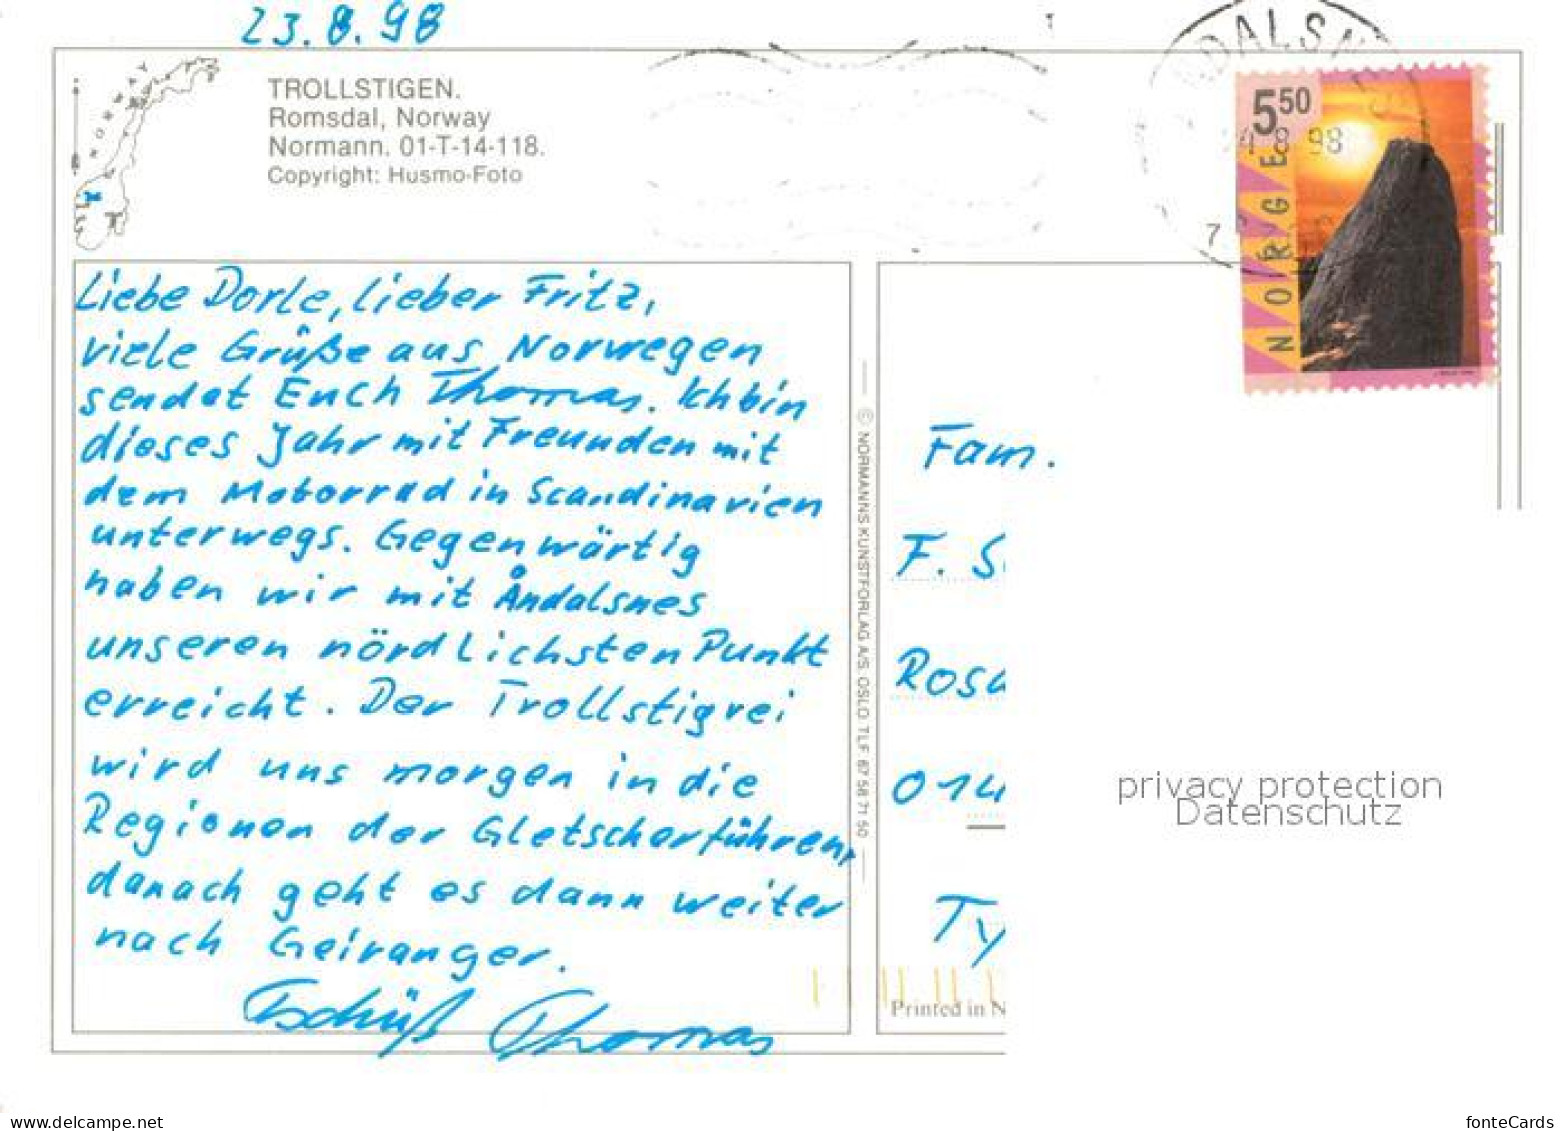 23.8.98
NORWAY
TROLLSTIGEN.
Romsdal, Norway
Normann. 01-T-14-118.
Copyright: Husmo-Foto
DALSN
550
4.8.98
7
NORGE
Liebe Dorle, lieber Fritz,
viele Grüße aus Norwegen
sendet Euch Thomas. Ich bin
dieses Jahr mit Freunden mit
dem Motorrad in Scandinavien
unterwegs. Gegenwärtig
haben wir mit Åndalsnes
unseren nördlichsten Punkt
erreicht. Der Trollstigvei
wird uns morgen in die
Regionen der Gletscher führen,
danach geht es dann weiter
nach Geiranger.
Tschüß Thomas
© NORMANNS KUNSTFORLAG A/S, OSLO. TLF 67 58 71 50
Fam.
F. S
Rosa
014
Ty
Printed in N
privacy protection
Datenschutz
www.delcampe.net
fonteCards